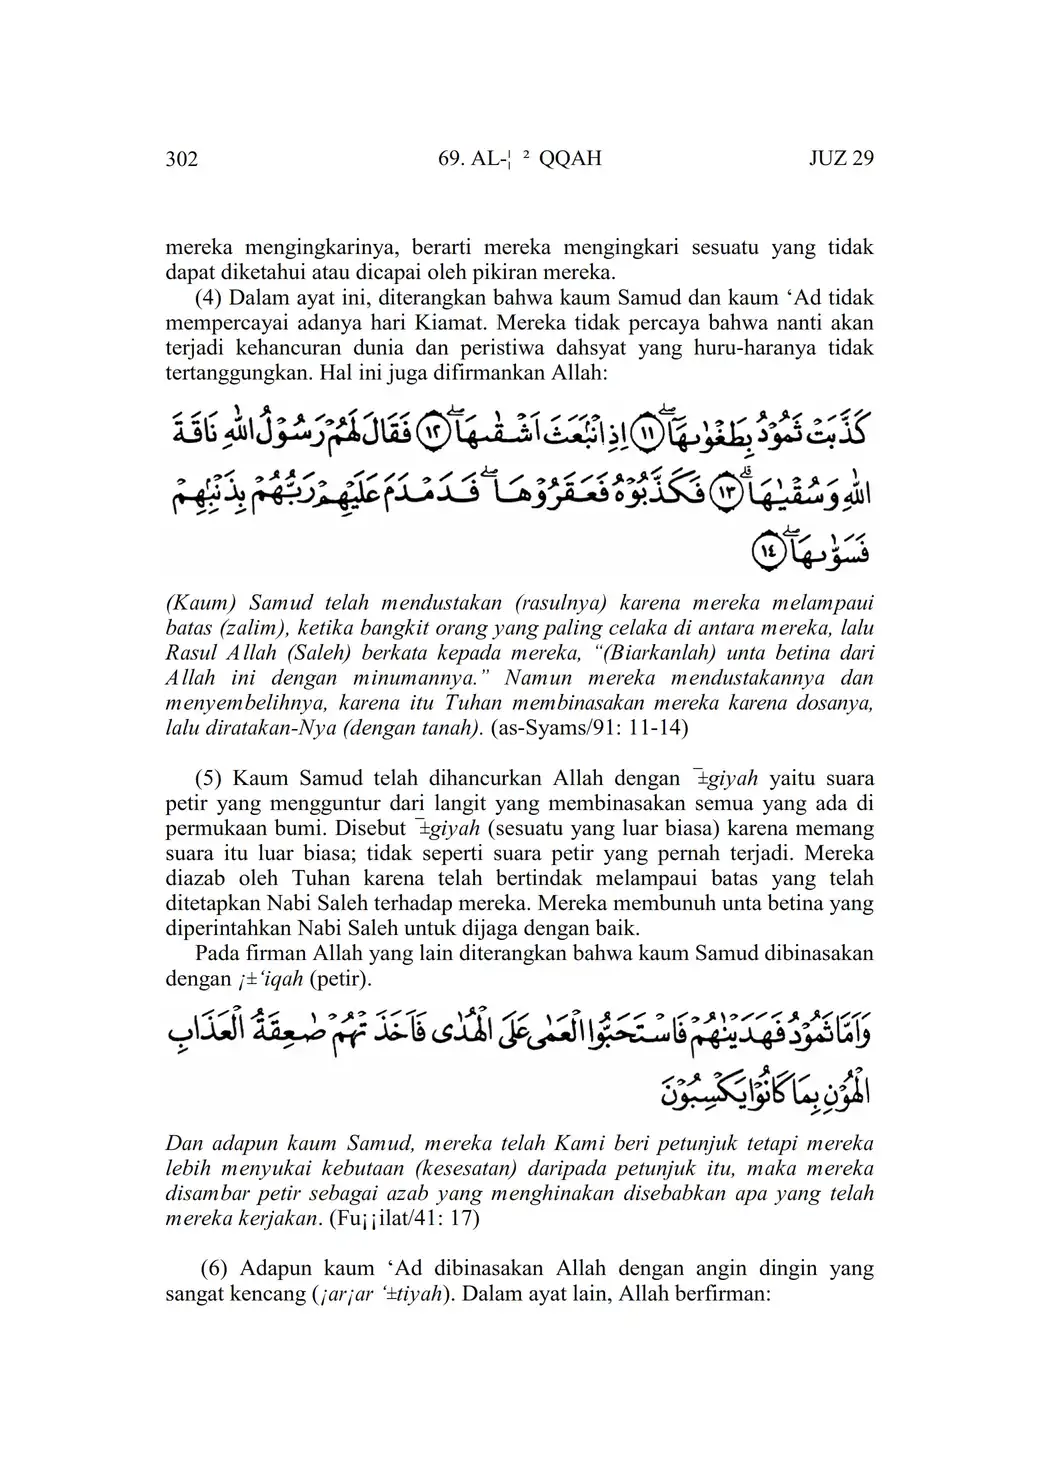 302 69. AL-¦ ² QQAH JUZ 29
mereka mengingkarinya, berarti mereka mengingkari sesuatu yang tidak
dapat diketahui atau dicapai oleh pikiran mereka.
(4) Dalam ayat ini, diterangkan bahwa kaum Samud dan kaum ‘Ad tidak
mempercayai adanya hari Kiamat. Mereka tidak percaya bahwa nanti akan
terjadi kehancuran dunia dan peristiwa dahsyat yang huru-haranya tidak
tertanggungkan. Hal ini juga difirmankan Allah:
كَذَّبَتْ ثَمُوْدُ بِطَغْوٰىهَآ ۖ ١١ اِذِ انْۢبَعَثَ اَشْقٰىهَاۖ ١٢ فَقَالَ لَهُمْ رَسُوْلُ اللّٰهِ نَاقَةَ
اللّٰهِ وَسُقْيٰهَاۗ ١٣ فَكَذَّبُوْهُ فَعَقَرُوْهَاۖ فَدَمْدَمَ عَلَيْهِمْ رَبُّهُمْ بِذَنْۢبِهِمْ
فَسَوّٰىهَاۖ ١٤
(Kaum) Samud telah mendustakan (rasulnya) karena mereka melampaui
batas (zalim), ketika bangkit orang yang paling celaka di antara mereka, lalu
Rasul Allah (Saleh) berkata kepada mereka, “(Biarkanlah) unta betina dari
Allah ini dengan minumannya.” Namun mereka mendustakannya dan
menyembelihnya, karena itu Tuhan membinasakan mereka karena dosanya,
lalu diratakan-Nya (dengan tanah). (as-Syams/91: 11-14)
(5) Kaum Samud telah dihancurkan Allah dengan ¯±giyah yaitu suara
petir yang mengguntur dari langit yang membinasakan semua yang ada di
permukaan bumi. Disebut ¯±giyah (sesuatu yang luar biasa) karena memang
suara itu luar biasa; tidak seperti suara petir yang pernah terjadi. Mereka
diazab oleh Tuhan karena telah bertindak melampaui batas yang telah
ditetapkan Nabi Saleh terhadap mereka. Mereka membunuh unta betina yang
diperintahkan Nabi Saleh untuk dijaga dengan baik.
Pada firman Allah yang lain diterangkan bahwa kaum Samud dibinasakan
dengan ¡±‘iqah (petir).
وَاَمَّا ثَمُوْدُ فَهَدَيْنٰهُمْ فَاسْتَحَبُّوا الْعَمٰى عَلَى الْهُدٰى فَاَخَذَتْهُمْ صٰعِقَةُ الْعَذَابِ
الْهُوْنِ بِمَا كَانُوْا يَكْسِبُوْنَ
Dan adapun kaum Samud, mereka telah Kami beri petunjuk tetapi mereka
lebih menyukai kebutaan (kesesatan) daripada petunjuk itu, maka mereka
disambar petir sebagai azab yang menghinakan disebabkan apa yang telah
mereka kerjakan. (Fu¡¡ilat/41: 17)
(6) Adapun kaum ‘Ad dibinasakan Allah dengan angin dingin yang
sangat kencang (¡ar¡ar ‘±tiyah). Dalam ayat lain, Allah berfirman: